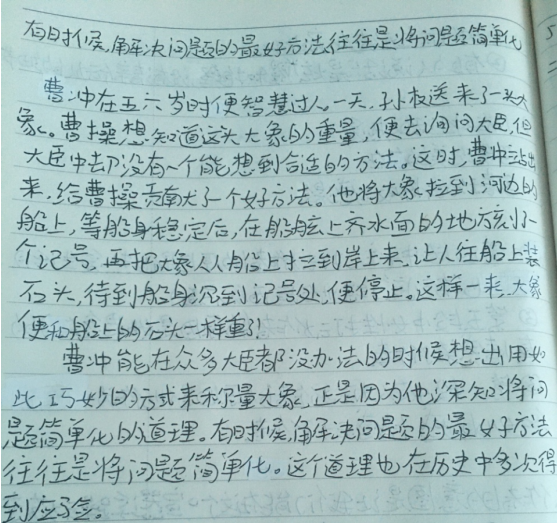 有时候,解决问题的最好方法往往是将问题简单化
曹冲在五六岁时便智慧过人。一天,孙权送来了一头大
象。曹操想知道这头大象的重量,便去询问大臣,但
大臣中却没有一个能想到合适的方法。这时,曹冲站出
来,给曹操贡献了一个好方法。他将大象拉到河边的
船上,等船身稳定后,在船舷上齐水面的地方刻了一
个记号,再把大象从船上拉到岸上来,让人往船上装
石头,待到船身沉到记号处,便停止。这样一来,大象
便和船上的石头一样重了!
曹冲能在众多大臣都没办法的时候想出用如
此巧妙的方式来称量大象,正是因为他深知将问
题简单化的道理。有时候,解决问题的最好方法
往往是将问题简单化。这个道理也在历史中多次得
到应验。